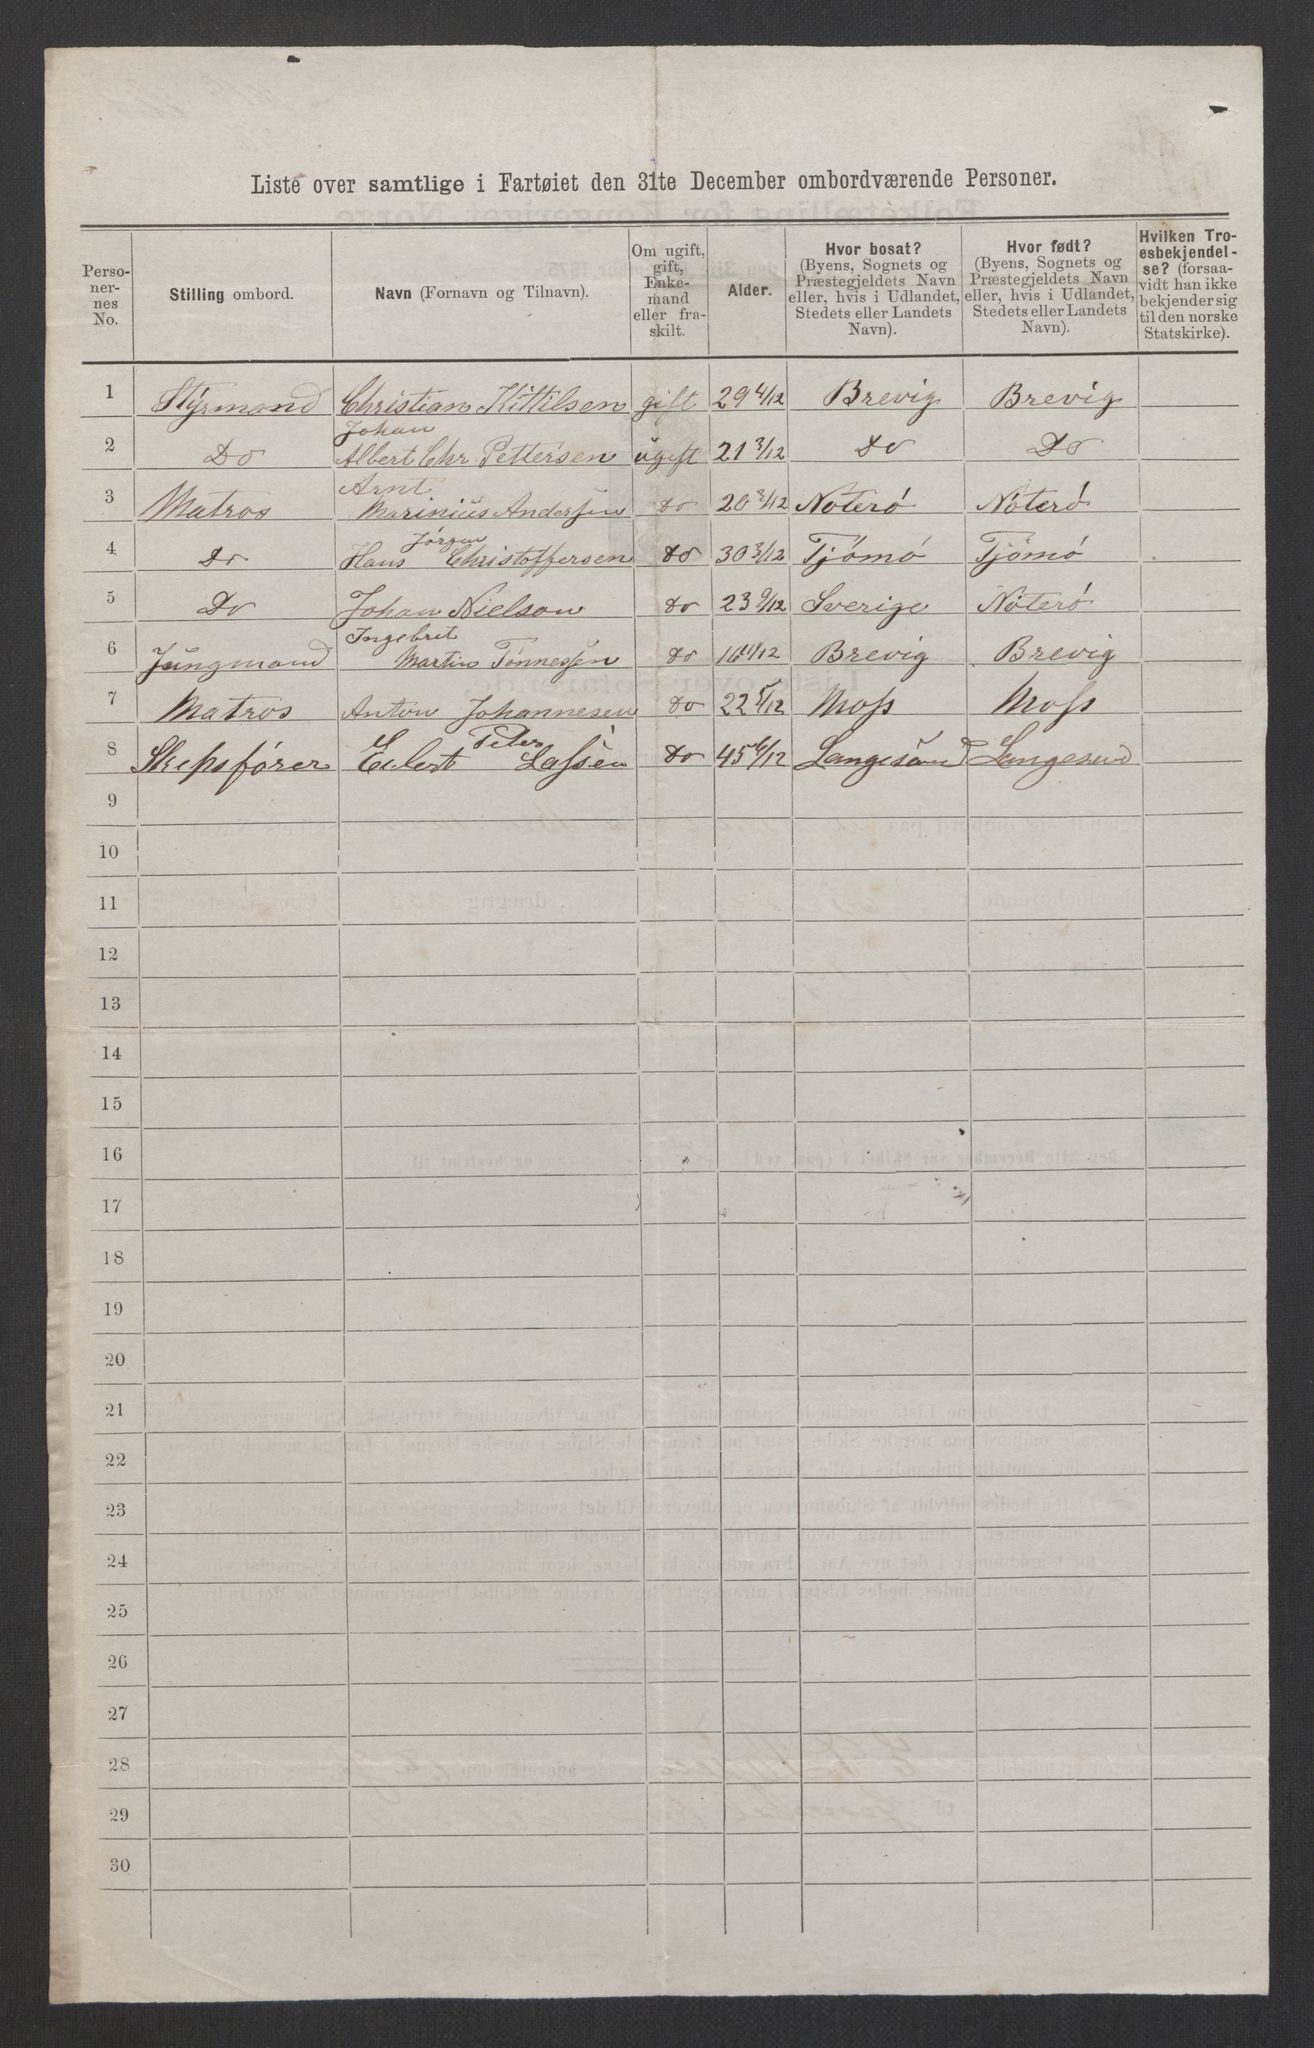 Liste over samtlige i Fartøiet den 31te December ombordværende Personer.
Perso-
ner-
nes
No.
Stilling ombord.
Navn (Fornavn og Tilnavn).
Om ugift,
gift,
Enke-
mand
eller fra-
skilt.
Alder.
Hvor bosat?
(Byens, Sognets og
Præstegjeldets Navn
eller, hvis i Udlandet,
Stedets eller Landets
Navn).
Hvor født?
(Byens, Sognets og
Præstegjeldets Navn
eller, hvis i Udlandet,
Stedets eller Landets
Navn).
Hvilken Tro-
esbekjendel-
se? (forsaa-
vidt han ikke
bekjender sig
til den norske
Statskirke).
1 Styrmand Christian Kittilsen gift 29 4/12 Brevig Brevig
Johan
2 Do Albert Chr. Pettersen ugift 21 3/12 Do Do
Arnt
3 Matros Marinius Andersen do 20 3/12 Noterö Nöterö
Jørgen
4 Do Hans Christoffersen do 30 3/12 Tjömö Tjömö
5 Do Johan Nielson do 23 9/12 Sverige Nöterö
Ingebret
6 Jungmand Martin Tønnessen do 16 11/12 Brevig Brevig
7 Matros Anton Johannesen do 22 5/12 Moss Moss
Peter
8 Skipsfører Eilert Lassen do 45 6/12 Langesund Langesund
9
10
11
12
13
14
15
16
17
18
19
20
21
22
23
24
25
26
27
28
29
30